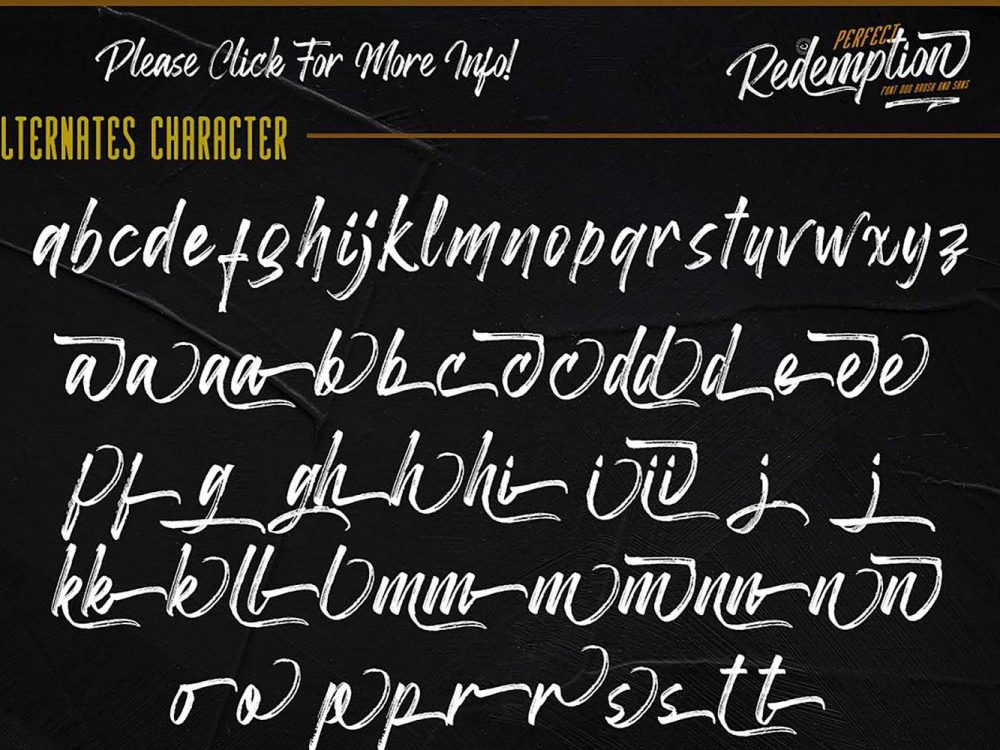 Please Click For More Info!
PERFECT
Redemption
FONT DUO BRUSH AND SANS
LTERNATES CHARACTER
abcdefghijklmnopqrstuvwxyz
a a a a b b c c c d d d e e e
f f g g h h h i i i i j j
k k k l l l m m m m n n n n
o o p p r r s s t t